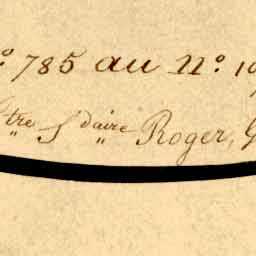 º 785 au Nº 19
tre Sdaire Roger, G